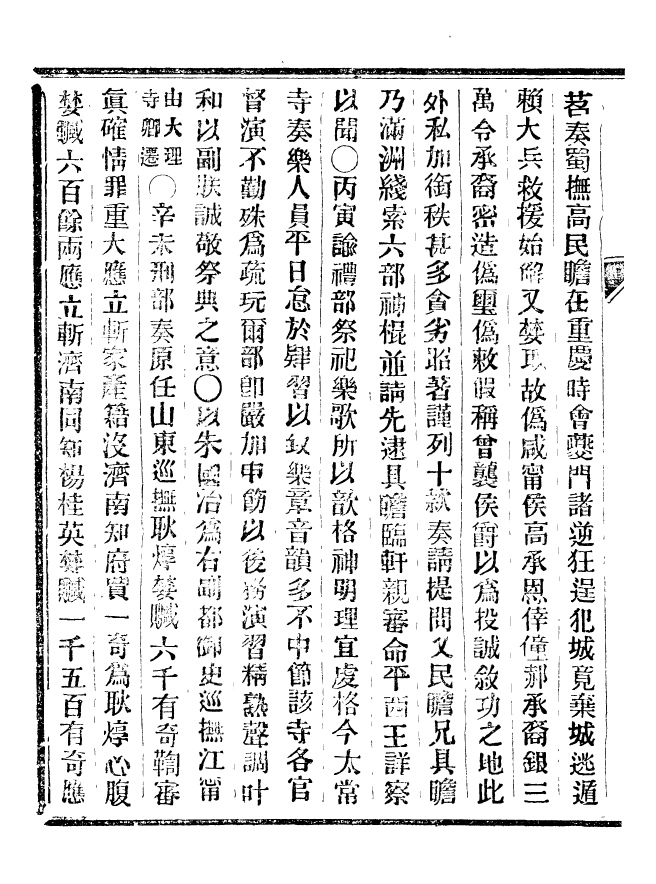 茗奏蜀撫高民瞻在重慶時會夔門諸逆狂逞犯城竟棄城逃遁
賴大兵救援始解又婪取故偽咸甯侯高承恩倖僮郝承裔銀三
萬令承裔密造偽璽偽敕假稱曾襲侯爵以為投誠敘功之地此
外私加銜秩甚多貪劣昭著謹列十欵奏請提問又民瞻兄具瞻
乃滿洲綫索六部神棍並請先逮具瞻臨軒親審命平西王詳察
以聞〇丙寅諭禮部祭祀樂歌所以歆格神明理宜虔恪今太常
寺奏樂人員平日怠於肄習以致樂章音韻多不中節該寺各官
督演不勤殊為疏玩爾部卽嚴加申飭以後務演習精熟聲調叶
和以副朕誠敬祭典之意〇以朱國治為右副都御史巡撫江甯
由大理寺卿遷〇辛未刑部奏原任山東巡撫耿焞婪贓六千有奇鞫審
眞確情罪重大應立斬家產籍沒濟南知府賈一奇為耿焞心腹
婪贓六百餘兩應立斬濟南同知楊桂英婪贓一千五百有奇應